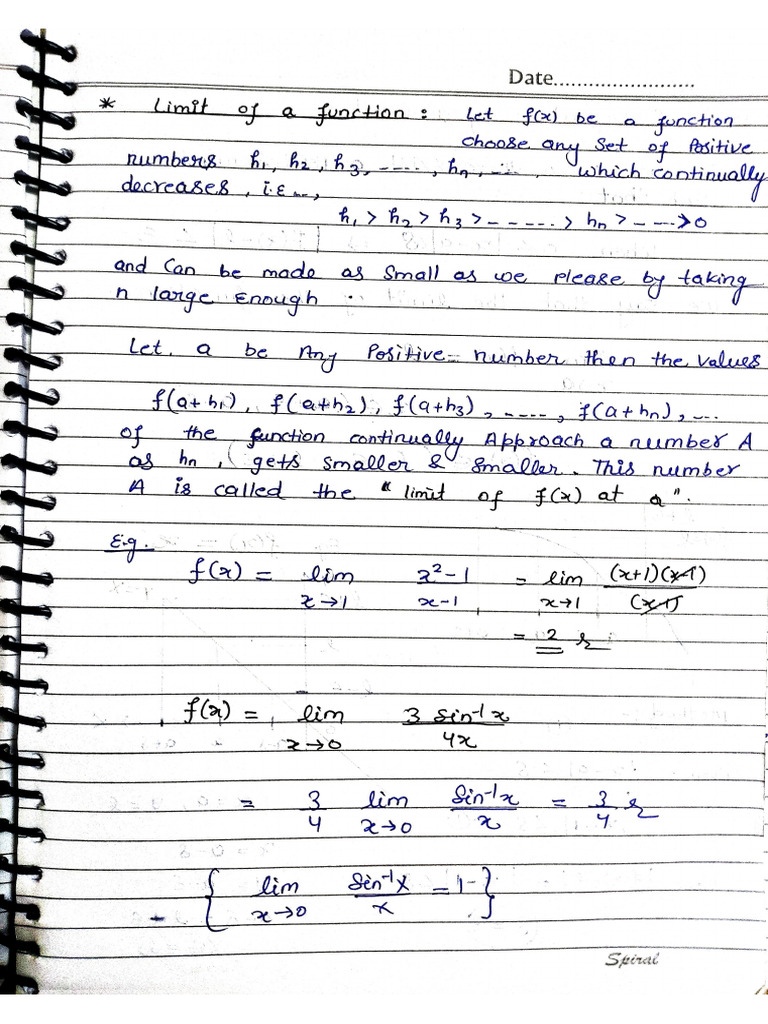 Date........................
* Limit of a function : Let f(x) be a function
choose any set of Positive
numbers h₁, h₂, h₃, ....., hₙ, ... which continually
decreases, i.e..,
h₁ > h₂ > h₃ > - - ..... > hₙ > - - - -> 0
and Can be made as small as we please by taking
n large Enough.
Let a be Any Positive number then the values
f(a+h₁), f(a+h₂), f(a+h₃), ......, f(a+hₙ), ...
of the function continually Approach a number A
as hₙ, gets smaller & smaller. This number
A is called the "limit of f(x) at a".
E.g.
f(x) = lim x→1 x²-1 / x-1 = lim x→1 (x+1)(x-1) / (x-1)
= 2
f(x) = lim x→0 3 sin⁻¹x / 4x
= 3/4 lim x→0 sin⁻¹x / x = 3/4
{ lim x→0 sin⁻¹x / x = 1 }
Spiral